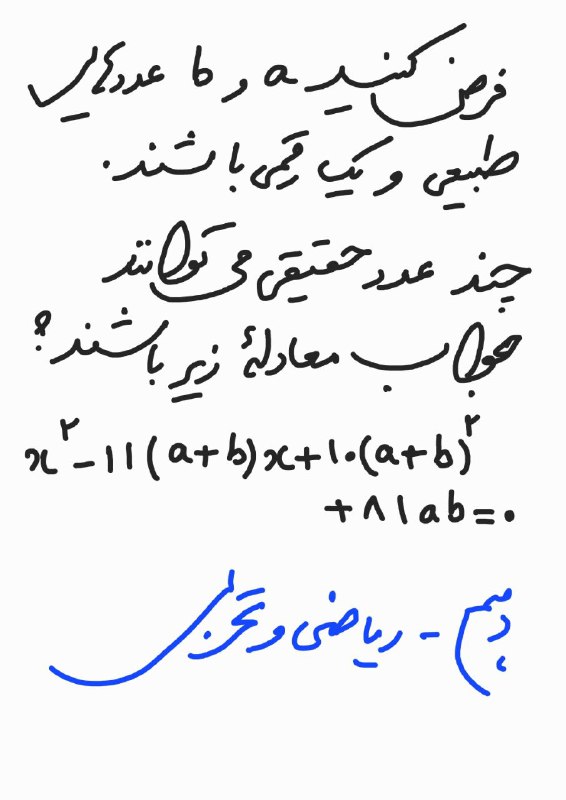 فرض کنید a و b عددهایی
طبیعی و یک رقمی باشند.
چند عدد حقیقی می توانند
جواب معادلهٔ زیر باشند؟
x² - ۱۱(a+b)x + ۱۰(a+b)²
+ ۸۱ab = ۰
دهم - ریاضی و تجربی